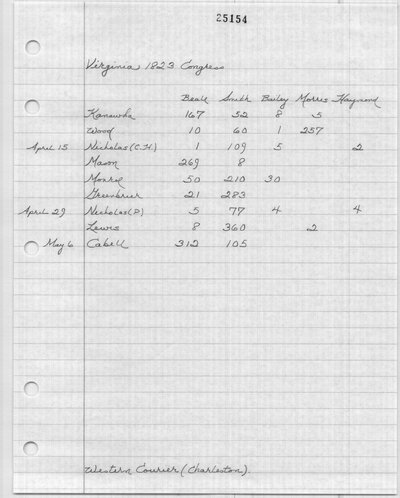 25154
Virginia 1823 Congress
Beale Smith Bailey Morris Haymond
Kanawha 167 52 8 5
Wood 10 60 1 257
April 15 Nicholas (C.H.) 1 109 5 2
Mason 269 8
Monroe 50 210 30
Greenbrier 21 283
April 29 Nicholas (P) 5 77 4 4
Lewis 8 360 2
May 6 Cabell 312 105
Western Courier (Charleston).